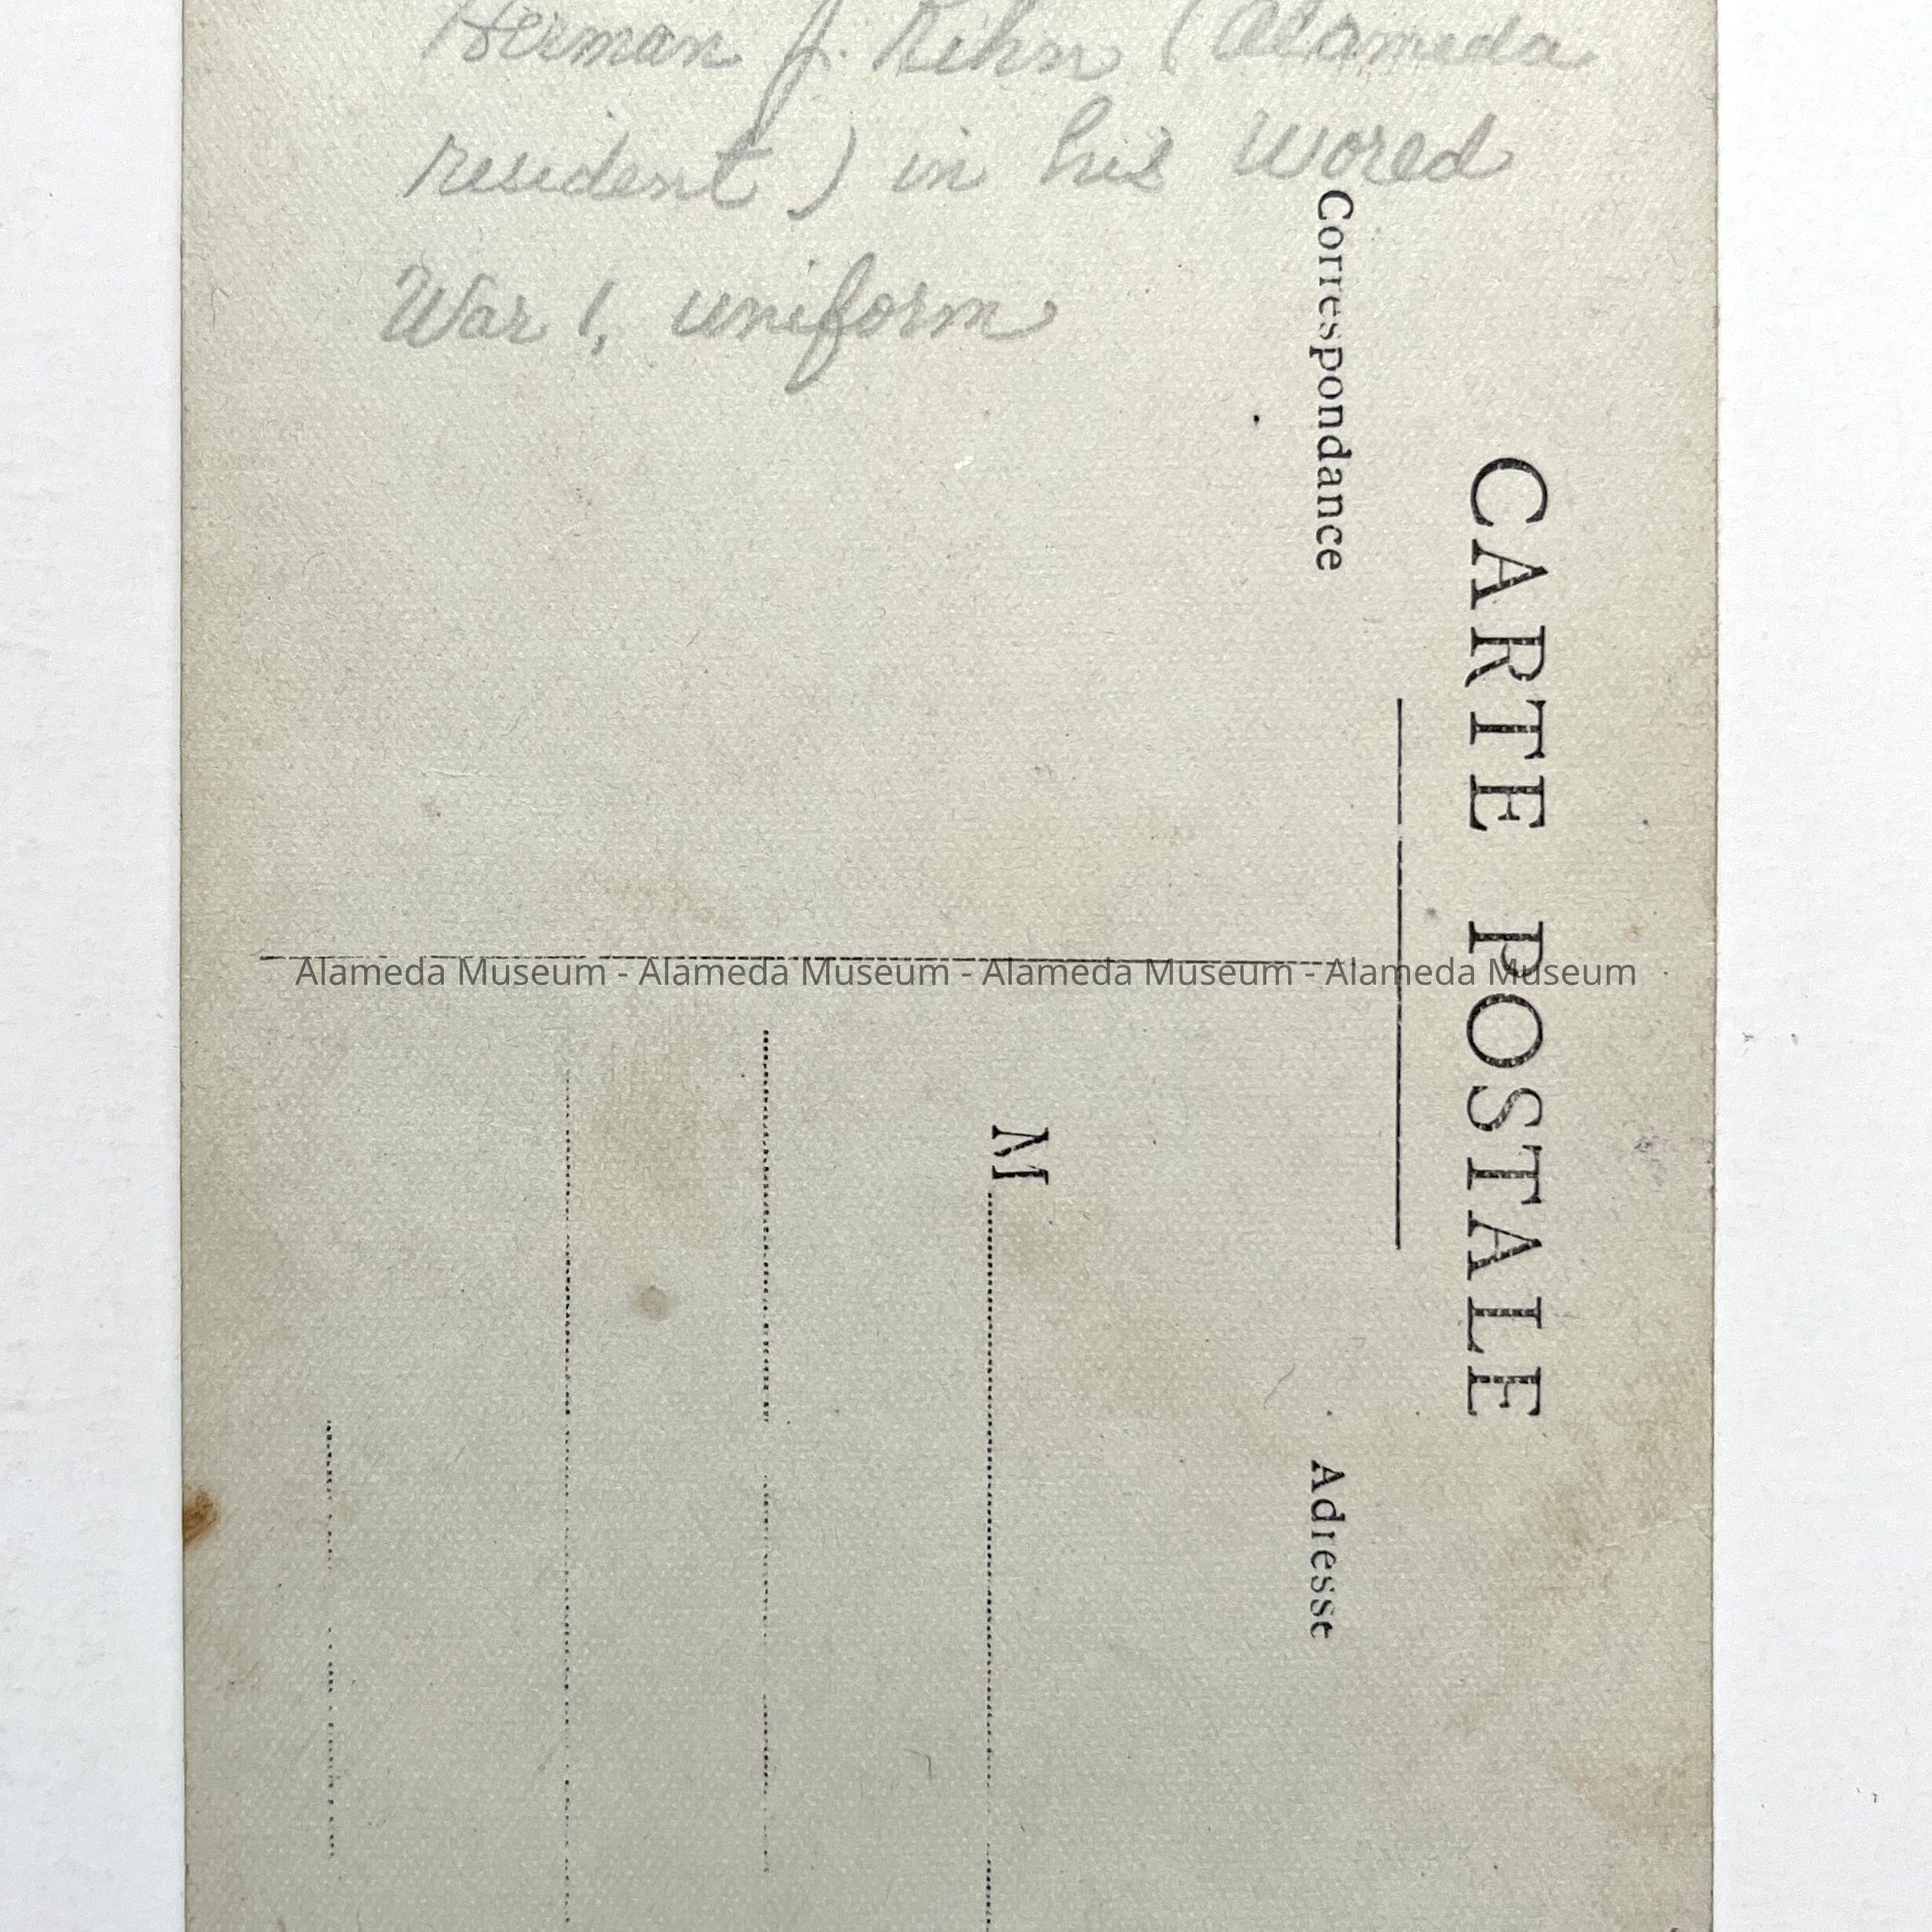 Herman J. Rihn (Alameda
resident) in his World
War 1, uniform
CARTE POSTALE
Correspondance
Adresse
M
Alameda Museum - Alameda Museum - Alameda Museum - Alameda Museum